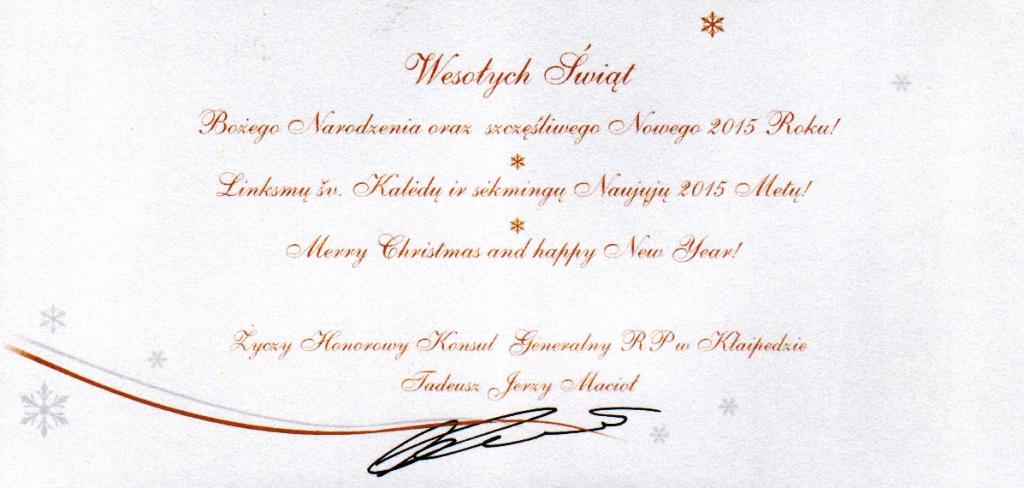 Wesołych Świąt
Bożego Narodzenia oraz szczęśliwego Nowego 2015 Roku!
Linksmų šv. Kalėdų ir sėkmingų Naujųjų 2015 Metų!
Merry Christmas and happy New Year!
Życzy Honorowy Konsul Generalny RP w Kłaipedzie
Tadeusz Jerzy Macioł